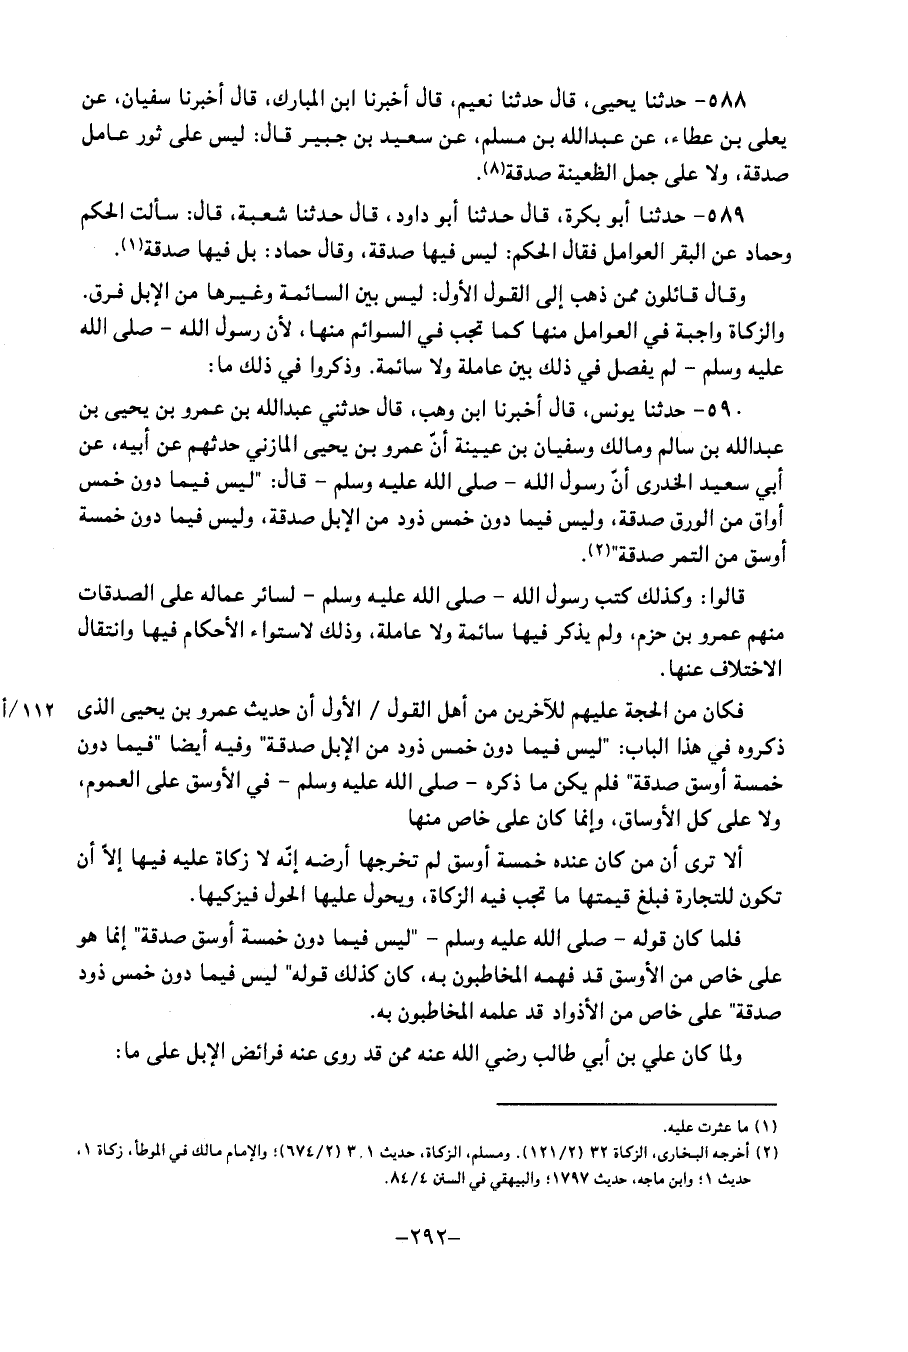 ٥٨٨- حدثنا يحيى، قال حدثنا نعيم، قال أخبرنا ابن المبارك، قال أخبرنا سفيان، عن
يعلى بن عطاء، عن عبدالله بن مسلم، عن سعيد بن جبير قال: ليس على ثور عامل
صدقة، ولا على جمل الظعينة صدقة(٨).
٥٨٩- حدثنا أبو بكرة، قال حدثنا أبو داود، قال حدثنا شعبة، قال: سألت الحكم
وحماد عن البقر العوامل فقال الحكم: ليس فيها صدقة، وقال حماد: بل فيها صدقة(١).
وقال قائلون ممن ذهب إلى القول الأول: ليس بين السائمة وغيرها من الإبل فرق.
والزكاة واجبة في العوامل منها كما تجب في السوائم منها، لأن رسول الله - صلى الله
عليه وسلم - لم يفصل في ذلك بين عاملة ولا سائمة. وذكروا في ذلك ما:
٥٩٠- حدثنا يونس، قال أخبرنا ابن وهب، قال حدثني عبدالله بن عمرو بن يحيى بن
عبدالله بن سالم ومالك وسفيان بن عيينة أنّ عمرو بن يحيى المازني حدثهم عن أبيه، عن
أبي سعيد الخدرى أنّ رسول الله - صلى الله عليه وسلم - قال: "ليس فيما دون خمس
أواق من الورق صدقة، وليس فيما دون خمس ذود من الإبل صدقة، وليس فيما دون خمسة
أوسق من التمر صدقة"(٢).
قالوا: وكذلك كتب رسول الله - صلى الله عليه وسلم - لسائر عماله على الصدقات
منهم عمرو بن حزم، ولم يذكر فيها سائمة ولا عاملة، وذلك لاستواء الأحكام فيها وانتقال
الاختلاف عنها.
فكان من الحجة عليهم للآخرين من أهل القول / الأول أن حديث عمرو بن يحيى الذى ١١٢/أ
ذكروه في هذا الباب: "ليس فيما دون خمس ذود من الإبل صدقة" وفيه أيضا "فيما دون
خمسة أوسق صدقة" فلم يكن ما ذكره - صلى الله عليه وسلم - في الأوسق على العموم،
ولا على كل الأوساق، وإنما كان على خاص منها
ألا ترى أن من كان عنده خمسة أوسق لم تخرجها أرضه إنّه لا زكاة عليه فيها إلاّ أن
تكون للتجارة فبلغ قيمتها ما تجب فيه الزكاة، ويحول عليها الحول فيزكيها.
فلما كان قوله - صلى الله عليه وسلم - "ليس فيما دون خمسة أوسق صدقة" إنما هو
على خاص من الأوسق قد فهمه المخاطبون به، كان كذلك قوله" ليس فيما دون خمس ذود
صدقة" على خاص من الأذواد قد علمه المخاطبون به.
ولما كان علي بن أبي طالب رضي الله عنه ممن قد روى عنه فرائض الإبل على ما:
(١) ما عثرت عليه.
(٢) أخرجه البخارى، الزكاة ٣٢ (١٢١/٢). ومسلم، الزكاة، حديث ٣.١ (٦٧٤/٢)؛ والإمام مالك في الموطأ، زكاة ١،
حديث ١؛ وابن ماجه، حديث ١٧٩٧؛ والبيهقي في السنن ٨٤/٤.
-٢٩٢-